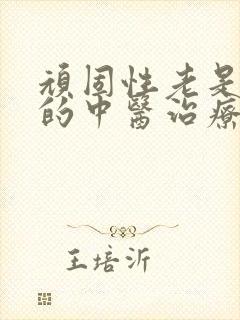 頑固性老是
的中醫治療
王培沂